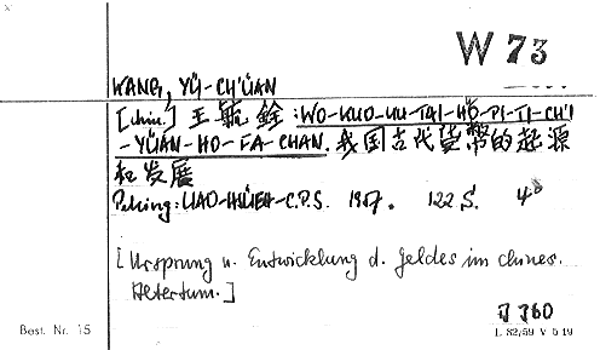 W 73
WANG, YÜ-CH'ÜAN
[chin.] 王毓銓: WO-KUO-KU-TAI-HO-PI-TI-CH'I
-YÜAN-HO-FA-CHAN. 我国古代貨幣的起源
和发展
Peking: LIAO-HSUEH-C.P.S. 1957. 122 S. 4°
[Ursprung u. Entwicklung d. Geldes im chines.
Altertum.]
J 360
Best. Nr. 15
L 82/59 V 0 19